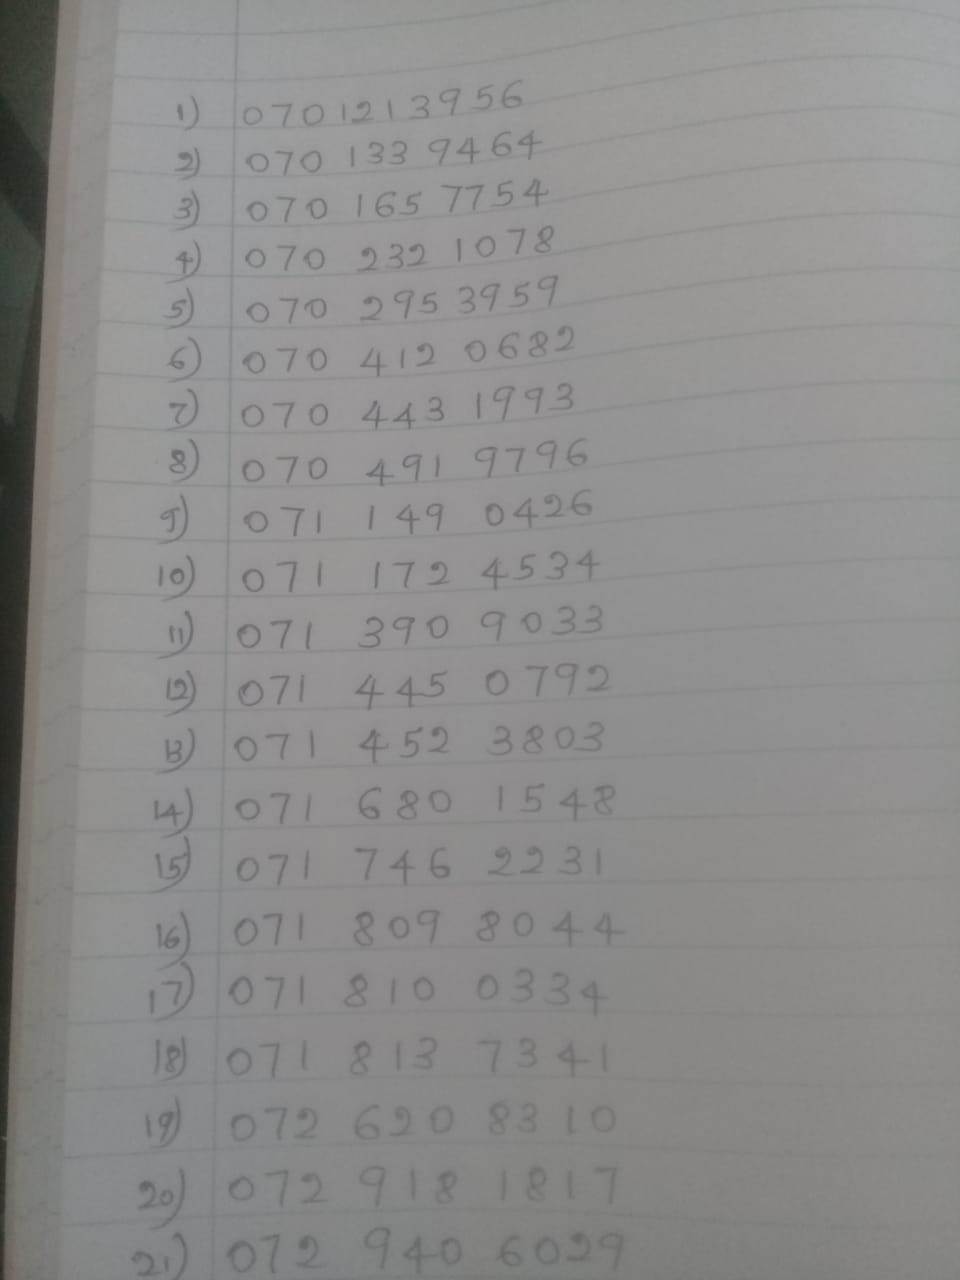 1) 0701213956
2) 070 133 9464
3) 070 165 7754
4) 070 232 1078
5) 070 295 3959
6) 070 412 0682
7) 070 443 1993
8) 070 491 9796
9) 071 149 0426
10) 071 172 4534
11) 071 390 9033
12) 071 445 0792
13) 071 452 3803
14) 071 680 1548
15) 071 746 2231
16) 071 809 8044
17) 071 810 0334
18) 071 813 7341
19) 072 620 8310
20) 072 918 1817
21) 072 940 6029